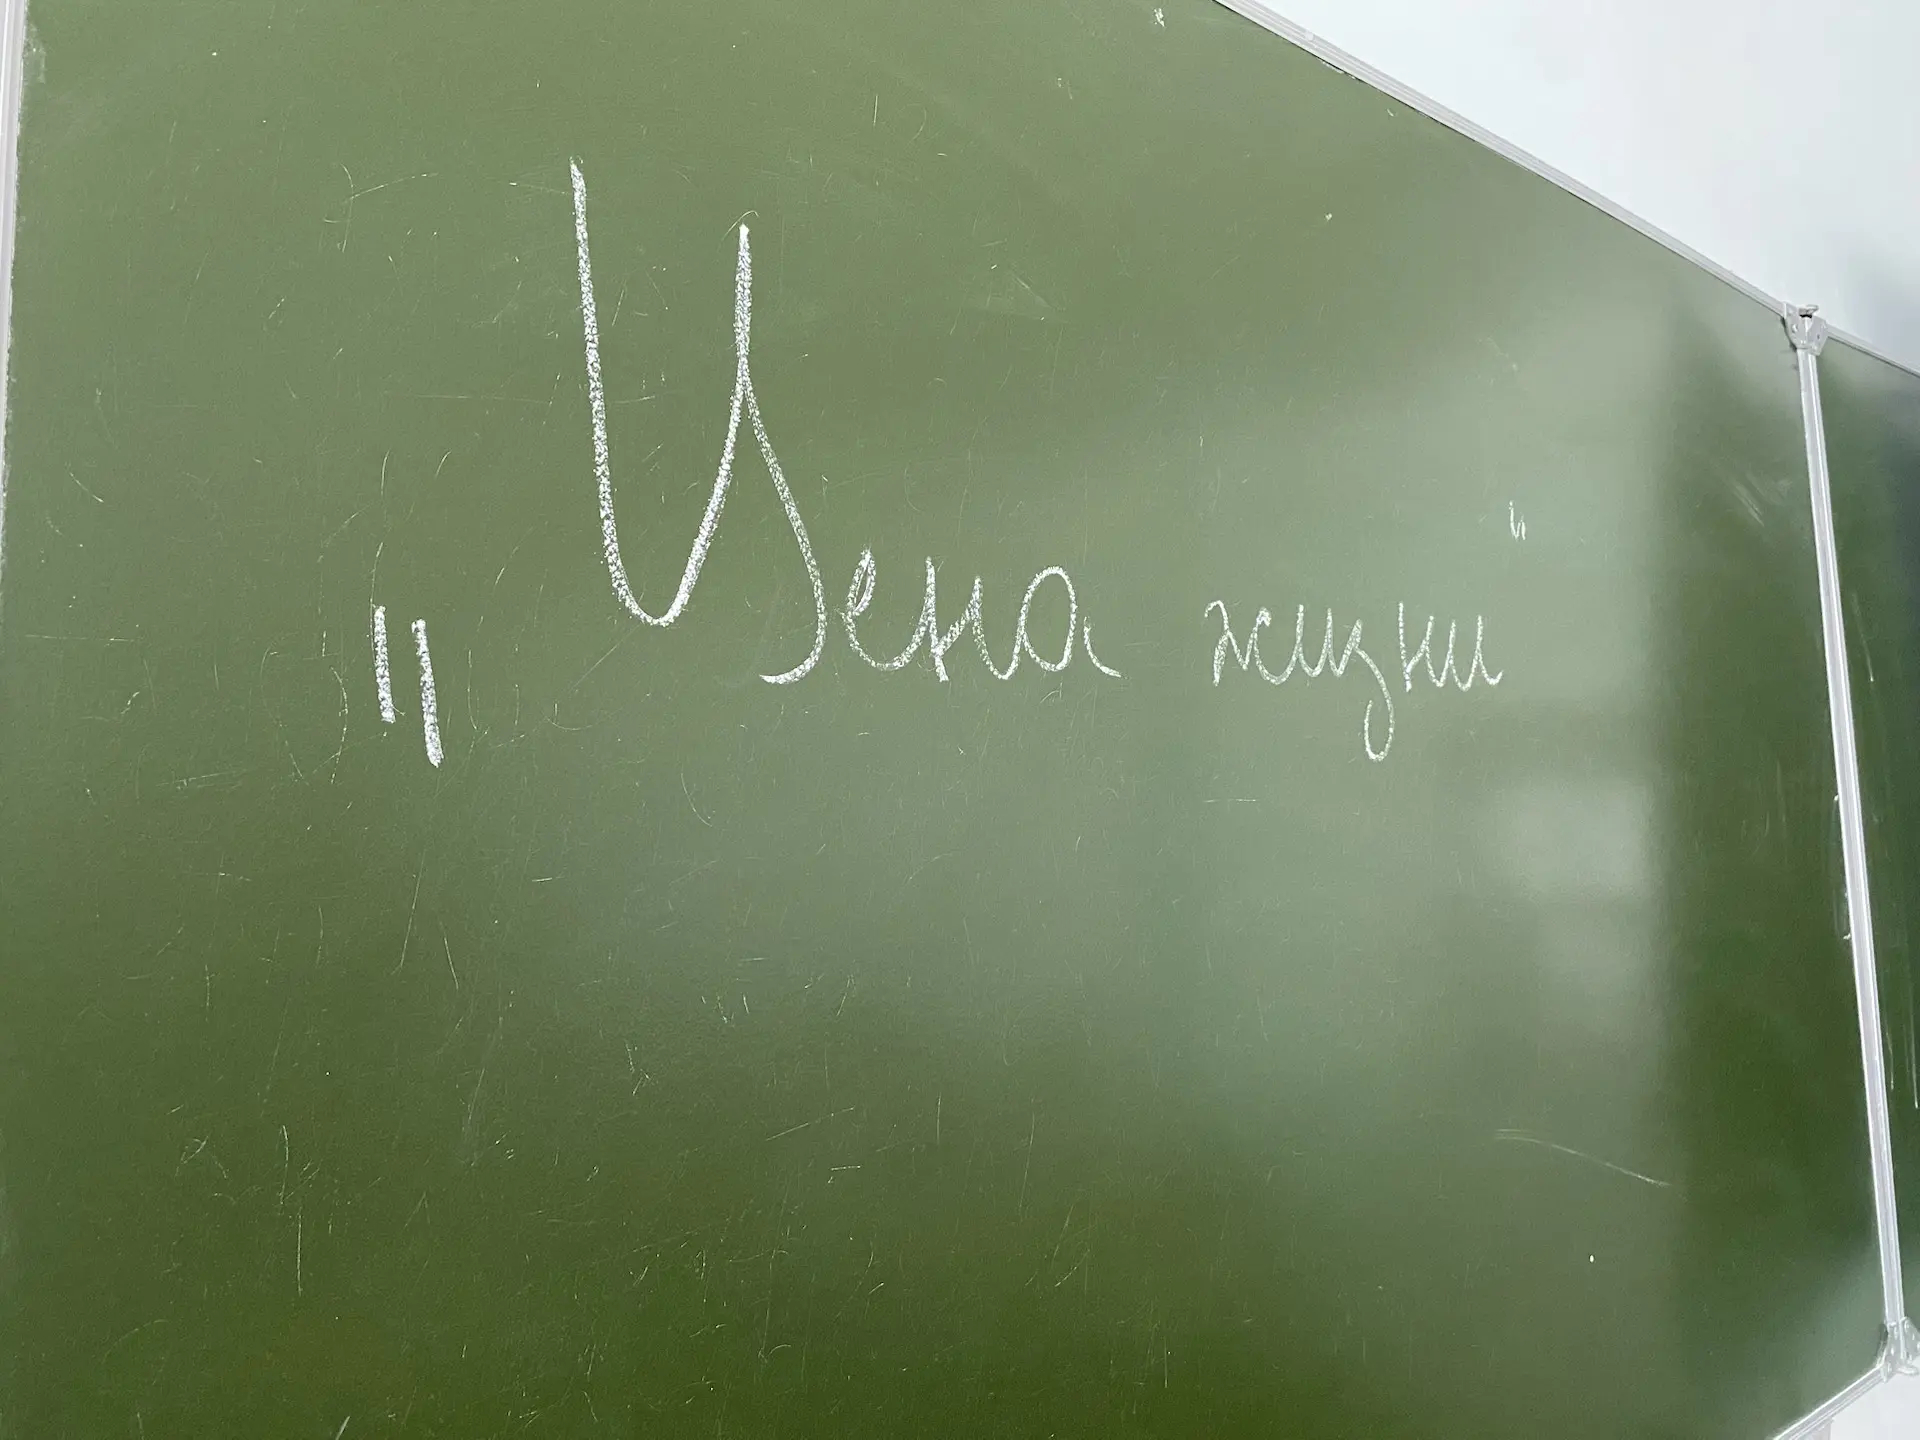 „Цена жизни"